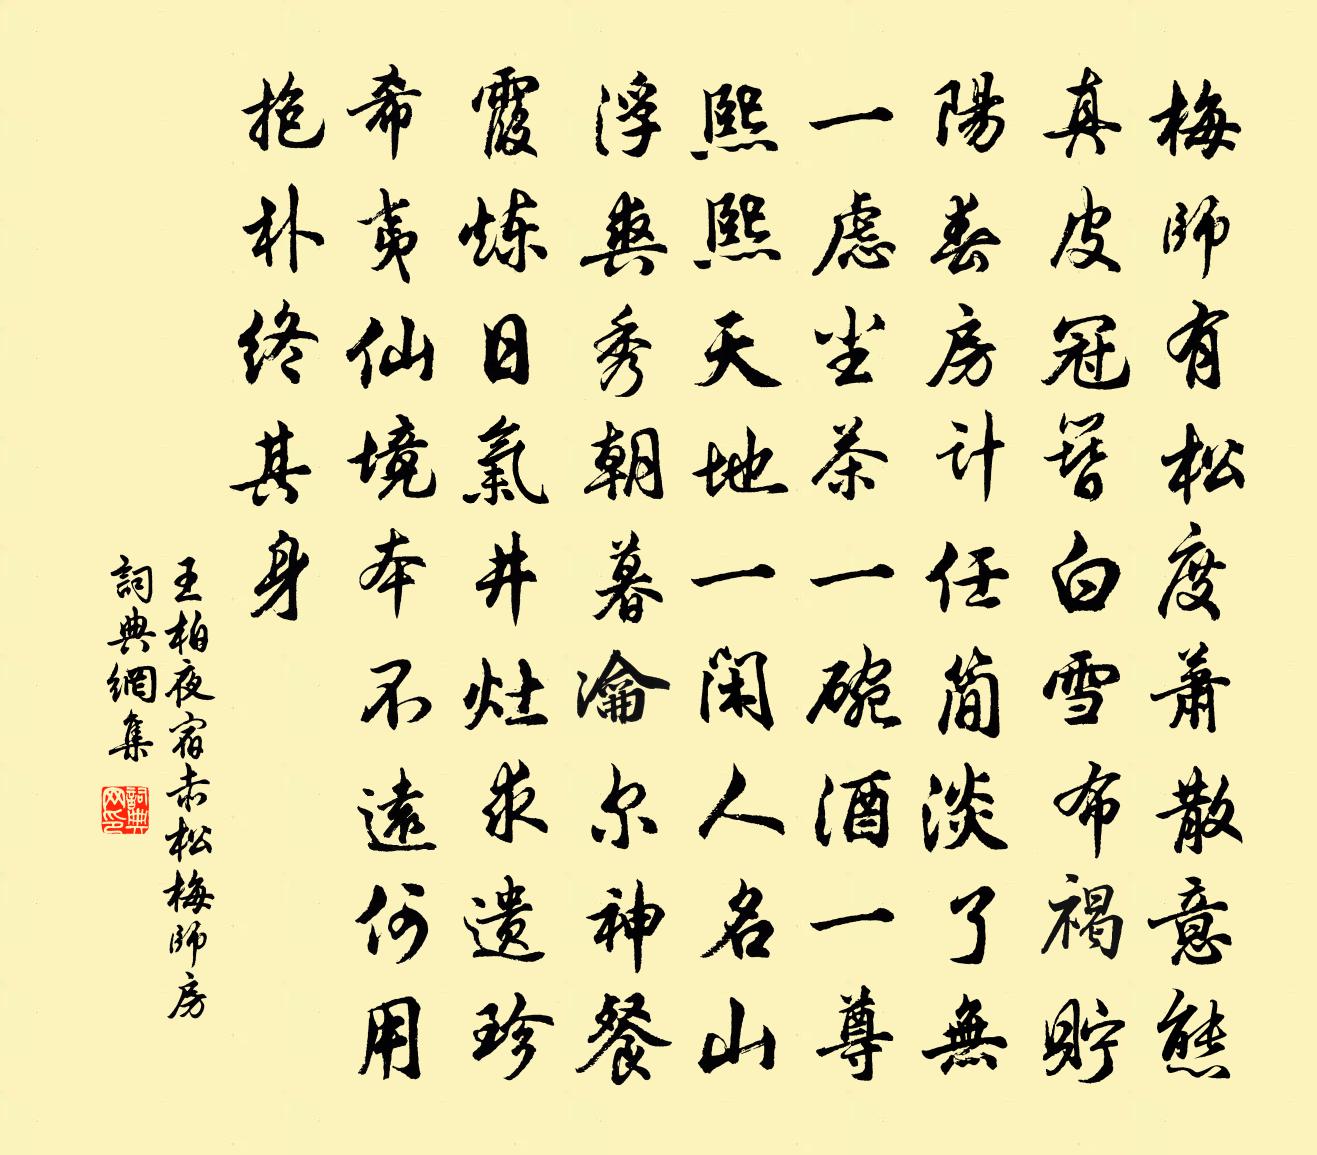 梅師有松度蕭散意態
真皮冠簪白雪布褐貯
陽春房计任简淡了無
一虑尘茶一碗酒一尊
熙熙天地一闲人名山
浮爽秀朝暮瀹尔神餐
霞炼日氣井灶求遗珍
希夷仙境本不遠何用
抱朴终其身
王柏夜宿赤松梅師房
詞典網集
詞典网印